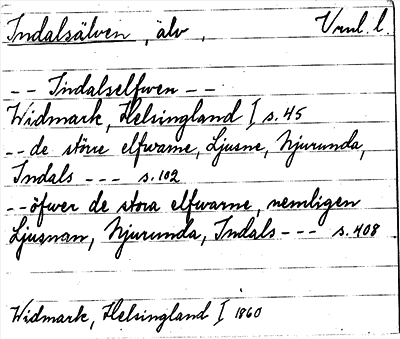 Indalsälven, älv, Vml. l.
-- Indalselfwen --
Widmark, Helsingland I s. 45
-- de större elfwarne, Ljusne, Njurunda,
Indals --- s. 102
-- öfwer de stora elfwarne, nemligen
Ljusnan, Njurunda, Indals --- s. 408
Widmark, Helsingland I 1860